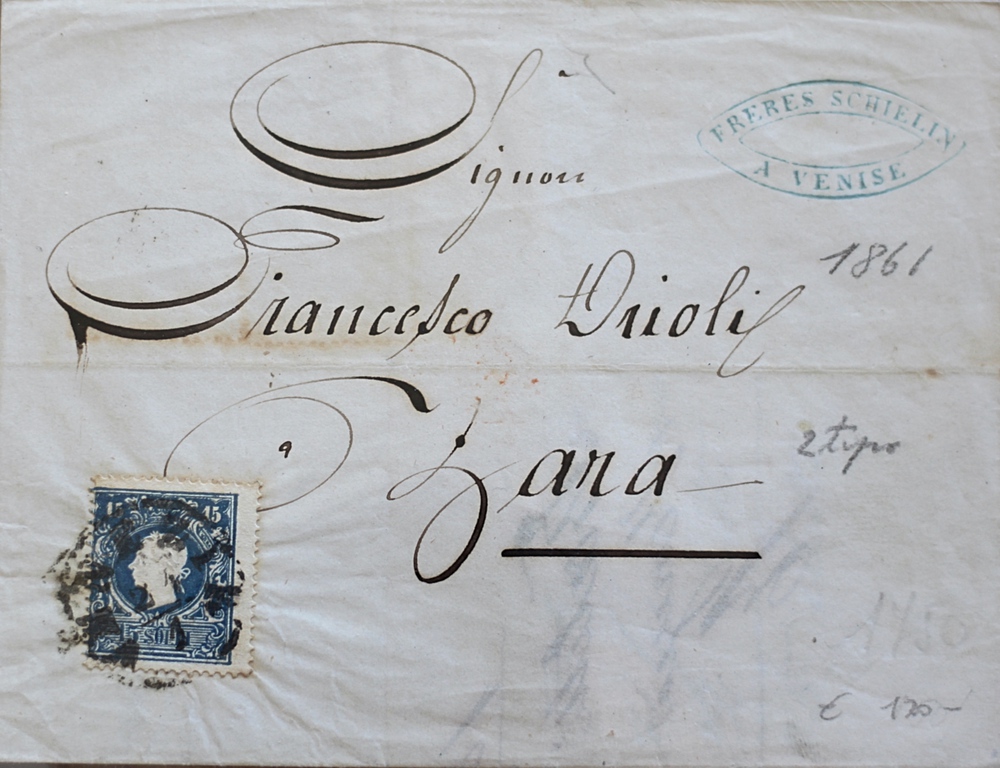 FRERES SCHIELIN
A VENISE
Signori
Francesco Drioli
1861
a
Zara
2 tipo
15 15
15 SOLDI
€ 120-